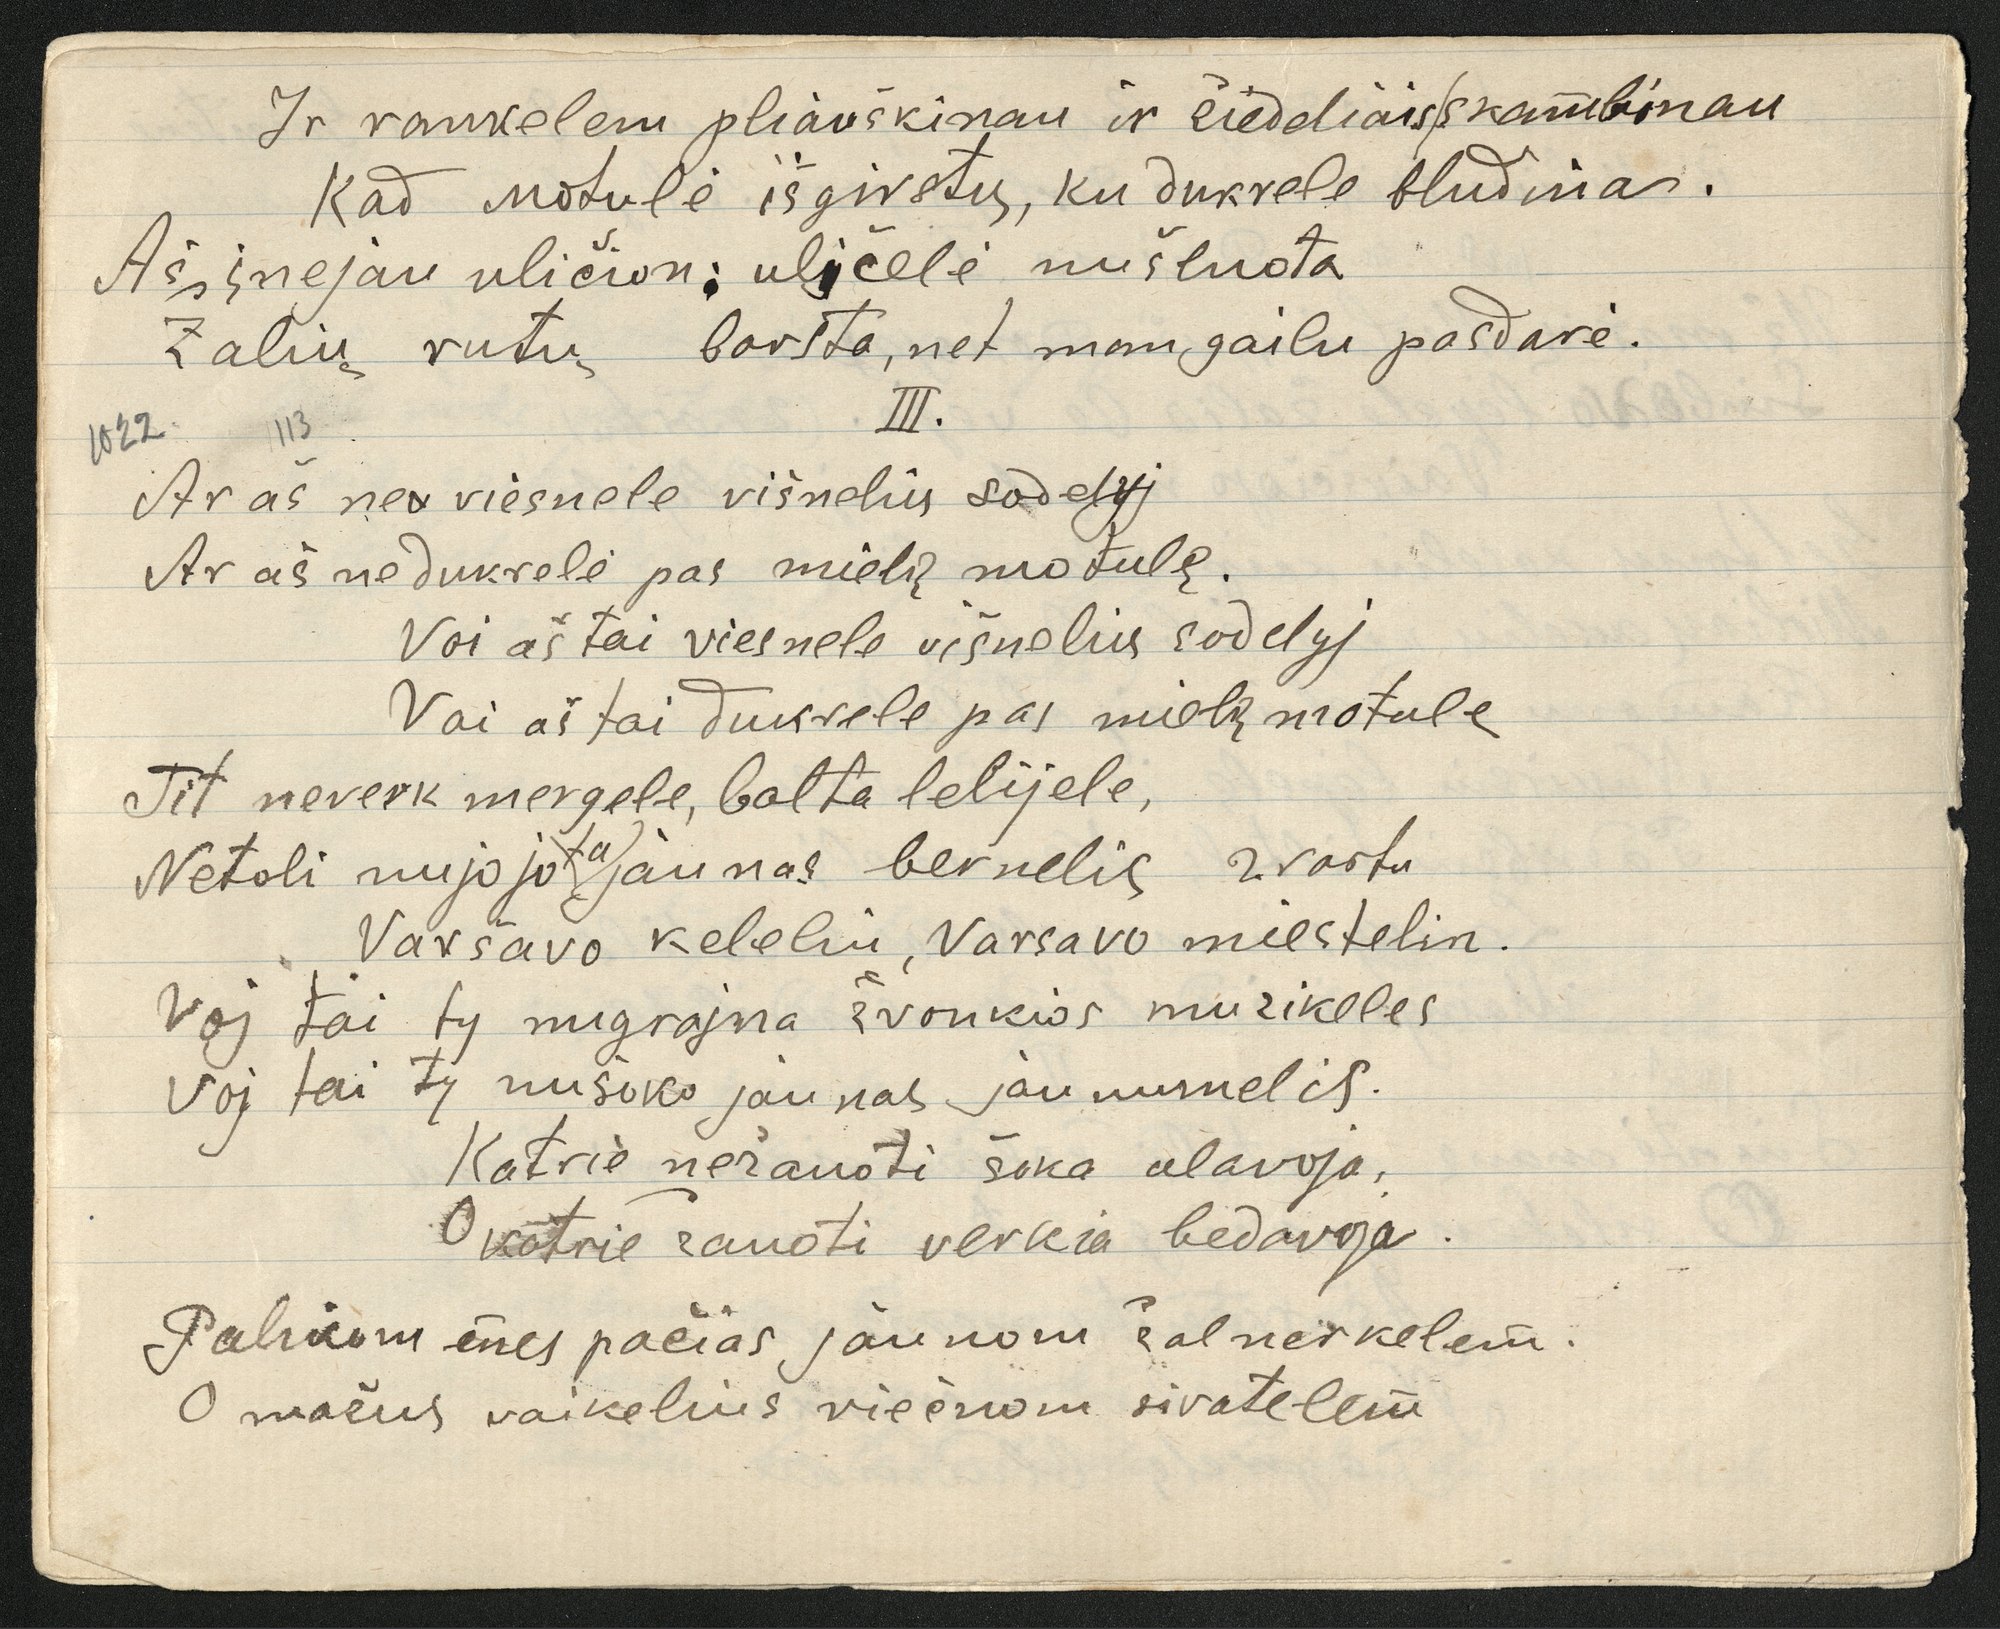 Ir rankelem pliauškinau ir žiedeliais skambinau
Kad motulė išgirstų, ku dukrele bludina.
Aš įnejau uličion; uličėlė nušluota
Žalių rutų barsta, net man gailu pasdarė.
III.
1022. 113
Ar aš ne viesnele višnelių sodelyj
Ar aš nedukrelė pas mielą motulę.
Voi aš tai viesnele višnelių sodelyj
Vai aš tai dukrele pas mielą motulę
Tit neverk mergele, balta lelijele,
Netoli nujojo ta jaunas bernelis
Varšavo keleliu, Varsavo miestelin.
Voj tai ty nugrajna žvonkios muzikeles
Voj tai ty nušoko jaunas jaunumelis.
Katrie nežanoti šoka ulavoja,
O katrie žanoti verkia bedavoja.
Palikom mes pačias jaunom žalnerkelem.
O mažus vaikelius viečnom siratelem